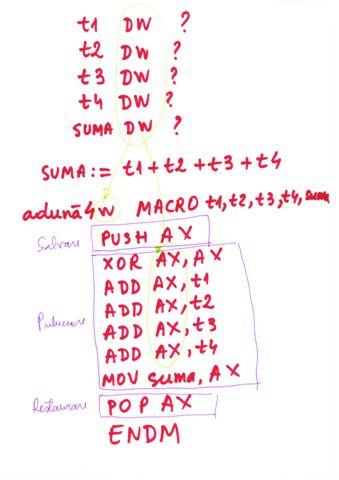 t1 DW ?
t2 DW ?
t3 DW ?
t4 DW ?
SUMA DW ?
SUMA := t1 + t2 + t3 + t4
adună4w MACRO t1, t2, t3, t4, suma
Salvare PUSH AX
XOR AX, AX
ADD AX, t1
ADD AX, t2
Prelucrare ADD AX, t3
ADD AX, t4
MOV suma, AX
Restaurare POP AX
ENDM